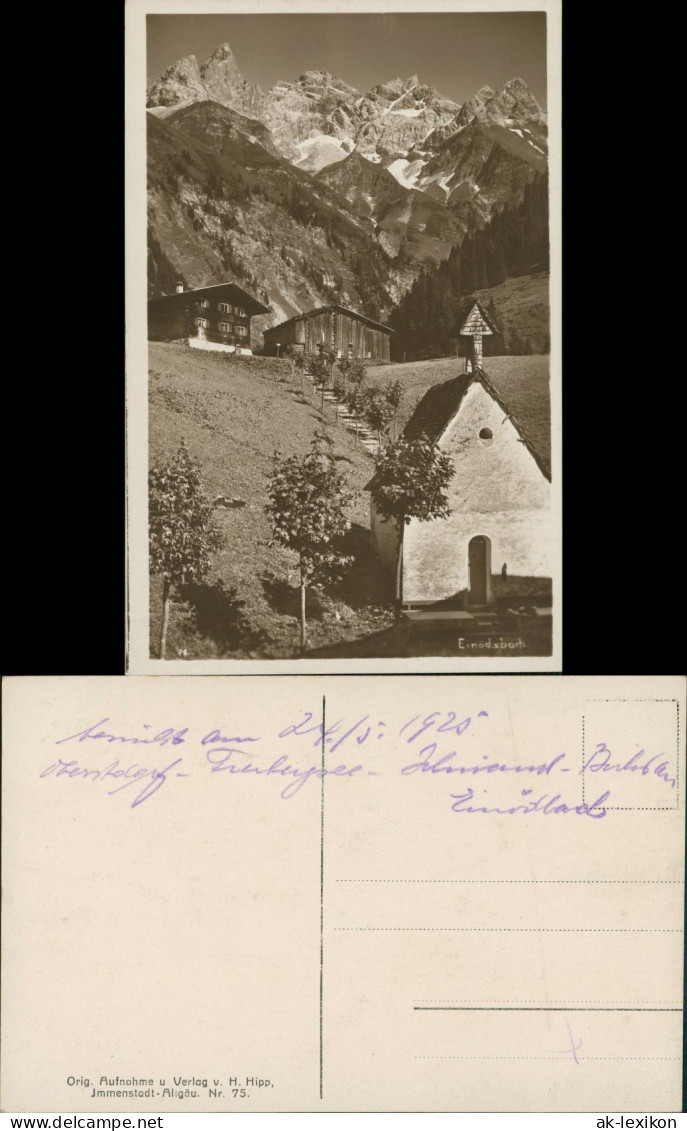 Einödsbach
berührt am 24/5. 1925
Oberstdorf - Freibergsee -
Einödsbach
Orig. Aufnahme u Verlag v. H. Hipp,
Jmmenstadt-Allgäu. Nr. 75.
www.delcampe.net
ak-lexikon